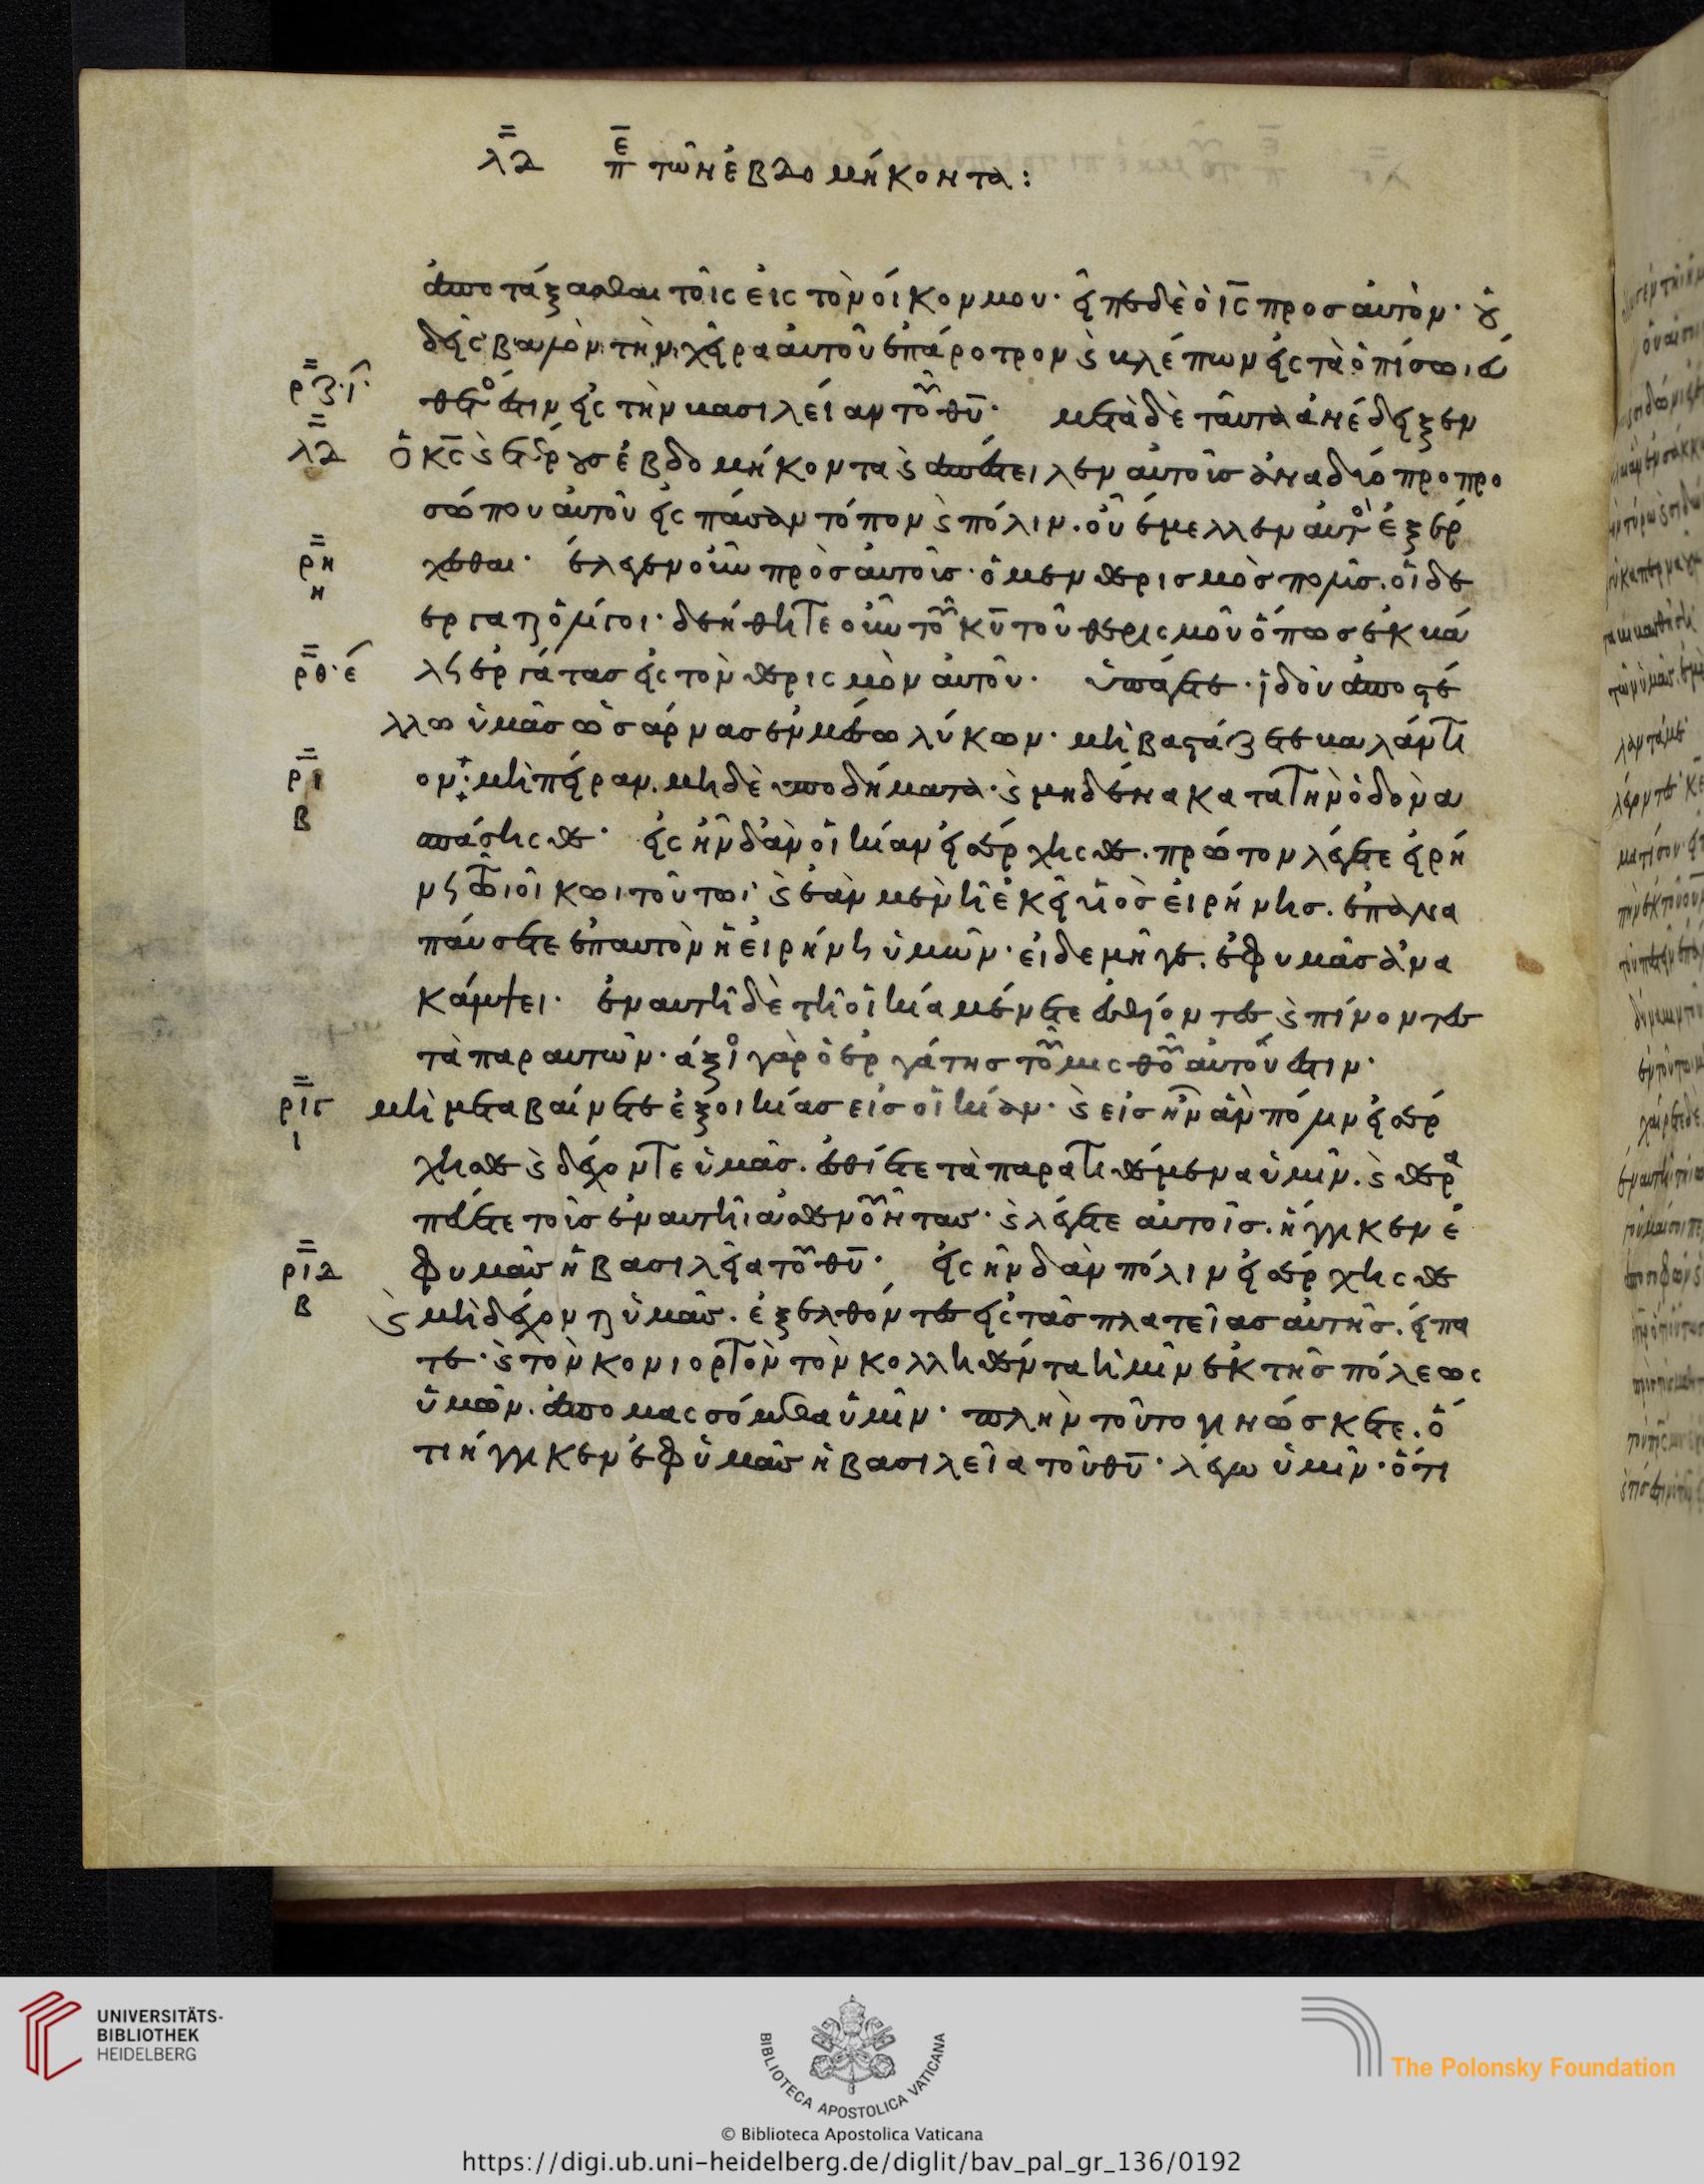 λδ περὶ τῶν ἑβδομήκοντα:
ἀποτάξασθαι τοῖς εἰς τὸν οἶκον μου· εἶπε δὲ ὁ ις̅ προσ αὐτὸν· οὐ
δεὶς βαλὼν τὴν χεῖρα αὐτοῦ ἐπάροτρον ϗ βλέπων εἰς τὰ ὀπίσω εὔ
ρζ·ι· θετός ἐστιν εἰς τὴν βασιλείαν τοῦ θυ̅· μετὰ δὲ ταῦτα ἀνέδειξεν
λδ ὁ κς̅ ϗ ἑτέρουσ ἑβδομήκοντα ϗ ἀπέστειλεν αὐτοὺσ ἀνα δύο προ προ
σώπου αὐτοῦ εἰς πάσαν τόπον ϗ πόλιν. οὗ ἔμελλεν αὐτὸς ἐξέρ
ρη η χεσθαι· ἔλεγεν οὖν πρὸσ αὐτοὺσ· ὁ μεν θερισμὸσ πολὺσ. οἱ δε
εργαται ὀλίγοι· δεήθητε οὖν τοῦ κυ̅ τοῦ θερισμοῦ ὅπωσ ἐκβά
ρθ·ε λη ἐργάτασ εἰς τὸν θερισμὸν αὐτοῦ· ὑπάγετε· ἰδοὺ ἀποστέ
λλω ὑμᾶσ ὡσ άρνασ ἐν μέσω λύκων· μὴ βαστάζετε βαλάντι
ρι β ον· μὴ πήραν. μηδὲ υποδήματα· ϗ μηδένα κατα τὴν ὁδὸν α
σπάσησθε· εἰς ἣν δἂν οἰκίαν εἰσέρχησθε. πρῶτον λέγετε εἰρή
νη τῶι οἴκωι τούτωι· ϗ ἐὰν μὲν ῆ ἐκεῖ υἱὸσ εἰρήνησ. ἐπανα
παύσεται ἐπαυτὸν ἡ εἰρήνη ὑμῶν· εἰδεμήγε. ἐφυμᾶσ ἀνα
κάμψει· ἐν αυτῆ δὲ τῆ οἰκία μένετε ἐσθίοντεσ ϗ πίνοντεσ
τὰ παραυτῶν· άξιος γὰρ ὁ ἐργάτησ τοῦ μισθοῦ αὐτοῦ ἐστιν·
ριγ ι μὴ μεταβαίνετε ἐξοικίασ εἰσ οἰκίαν· ϗ εἰσ ἣν ἂν πόλιν εἰσέρ
χησθε ϗ δέχονται ὑμᾶσ. ἐσθίετε τὰ παρατιθέμενα ὑμῖν. ϗ θερα
πεύετε τοὺσ ἐν αυτῆ ἀσθενοῦντασ· ϗ λέγετε αὐτοῖσ. ἤγγικεν ἐ
ριδ β φυμᾶσ ἡ βασιλεία τοῦ θυ̅· εἰς ἣν δἂν πόλιν εἰσέρχησθε
ϗ μὴ δέχονται ὑμᾶσ. ἐξελθόντεσ εἰς τὰσ πλατείασ αὐτῆσ. είπα
τε· ϗ τὸν κονιορτὸν τὸν κολληθέντα ἡμῖν ἐκ τῆσ πόλεως
ὑμῶν. ἀπομασσόμεθα ὑμῖν· πλὴν τοῦτο γινώσκετε. ὅ
τι ἤγγικεν ἐφ ὑμᾶσ ἡ βασιλεία τοῦ θυ̅· λέγω ὑμῖν· ὅτι
UNIVERSITÄTS-
BIBLIOTHEK
HEIDELBERG
BIBLIOTECA APOSTOLICA VATICANA
The Polonsky Foundation
© Biblioteca Apostolica Vaticana
https://digi.ub.uni-heidelberg.de/diglit/bav_pal_gr_136/0192